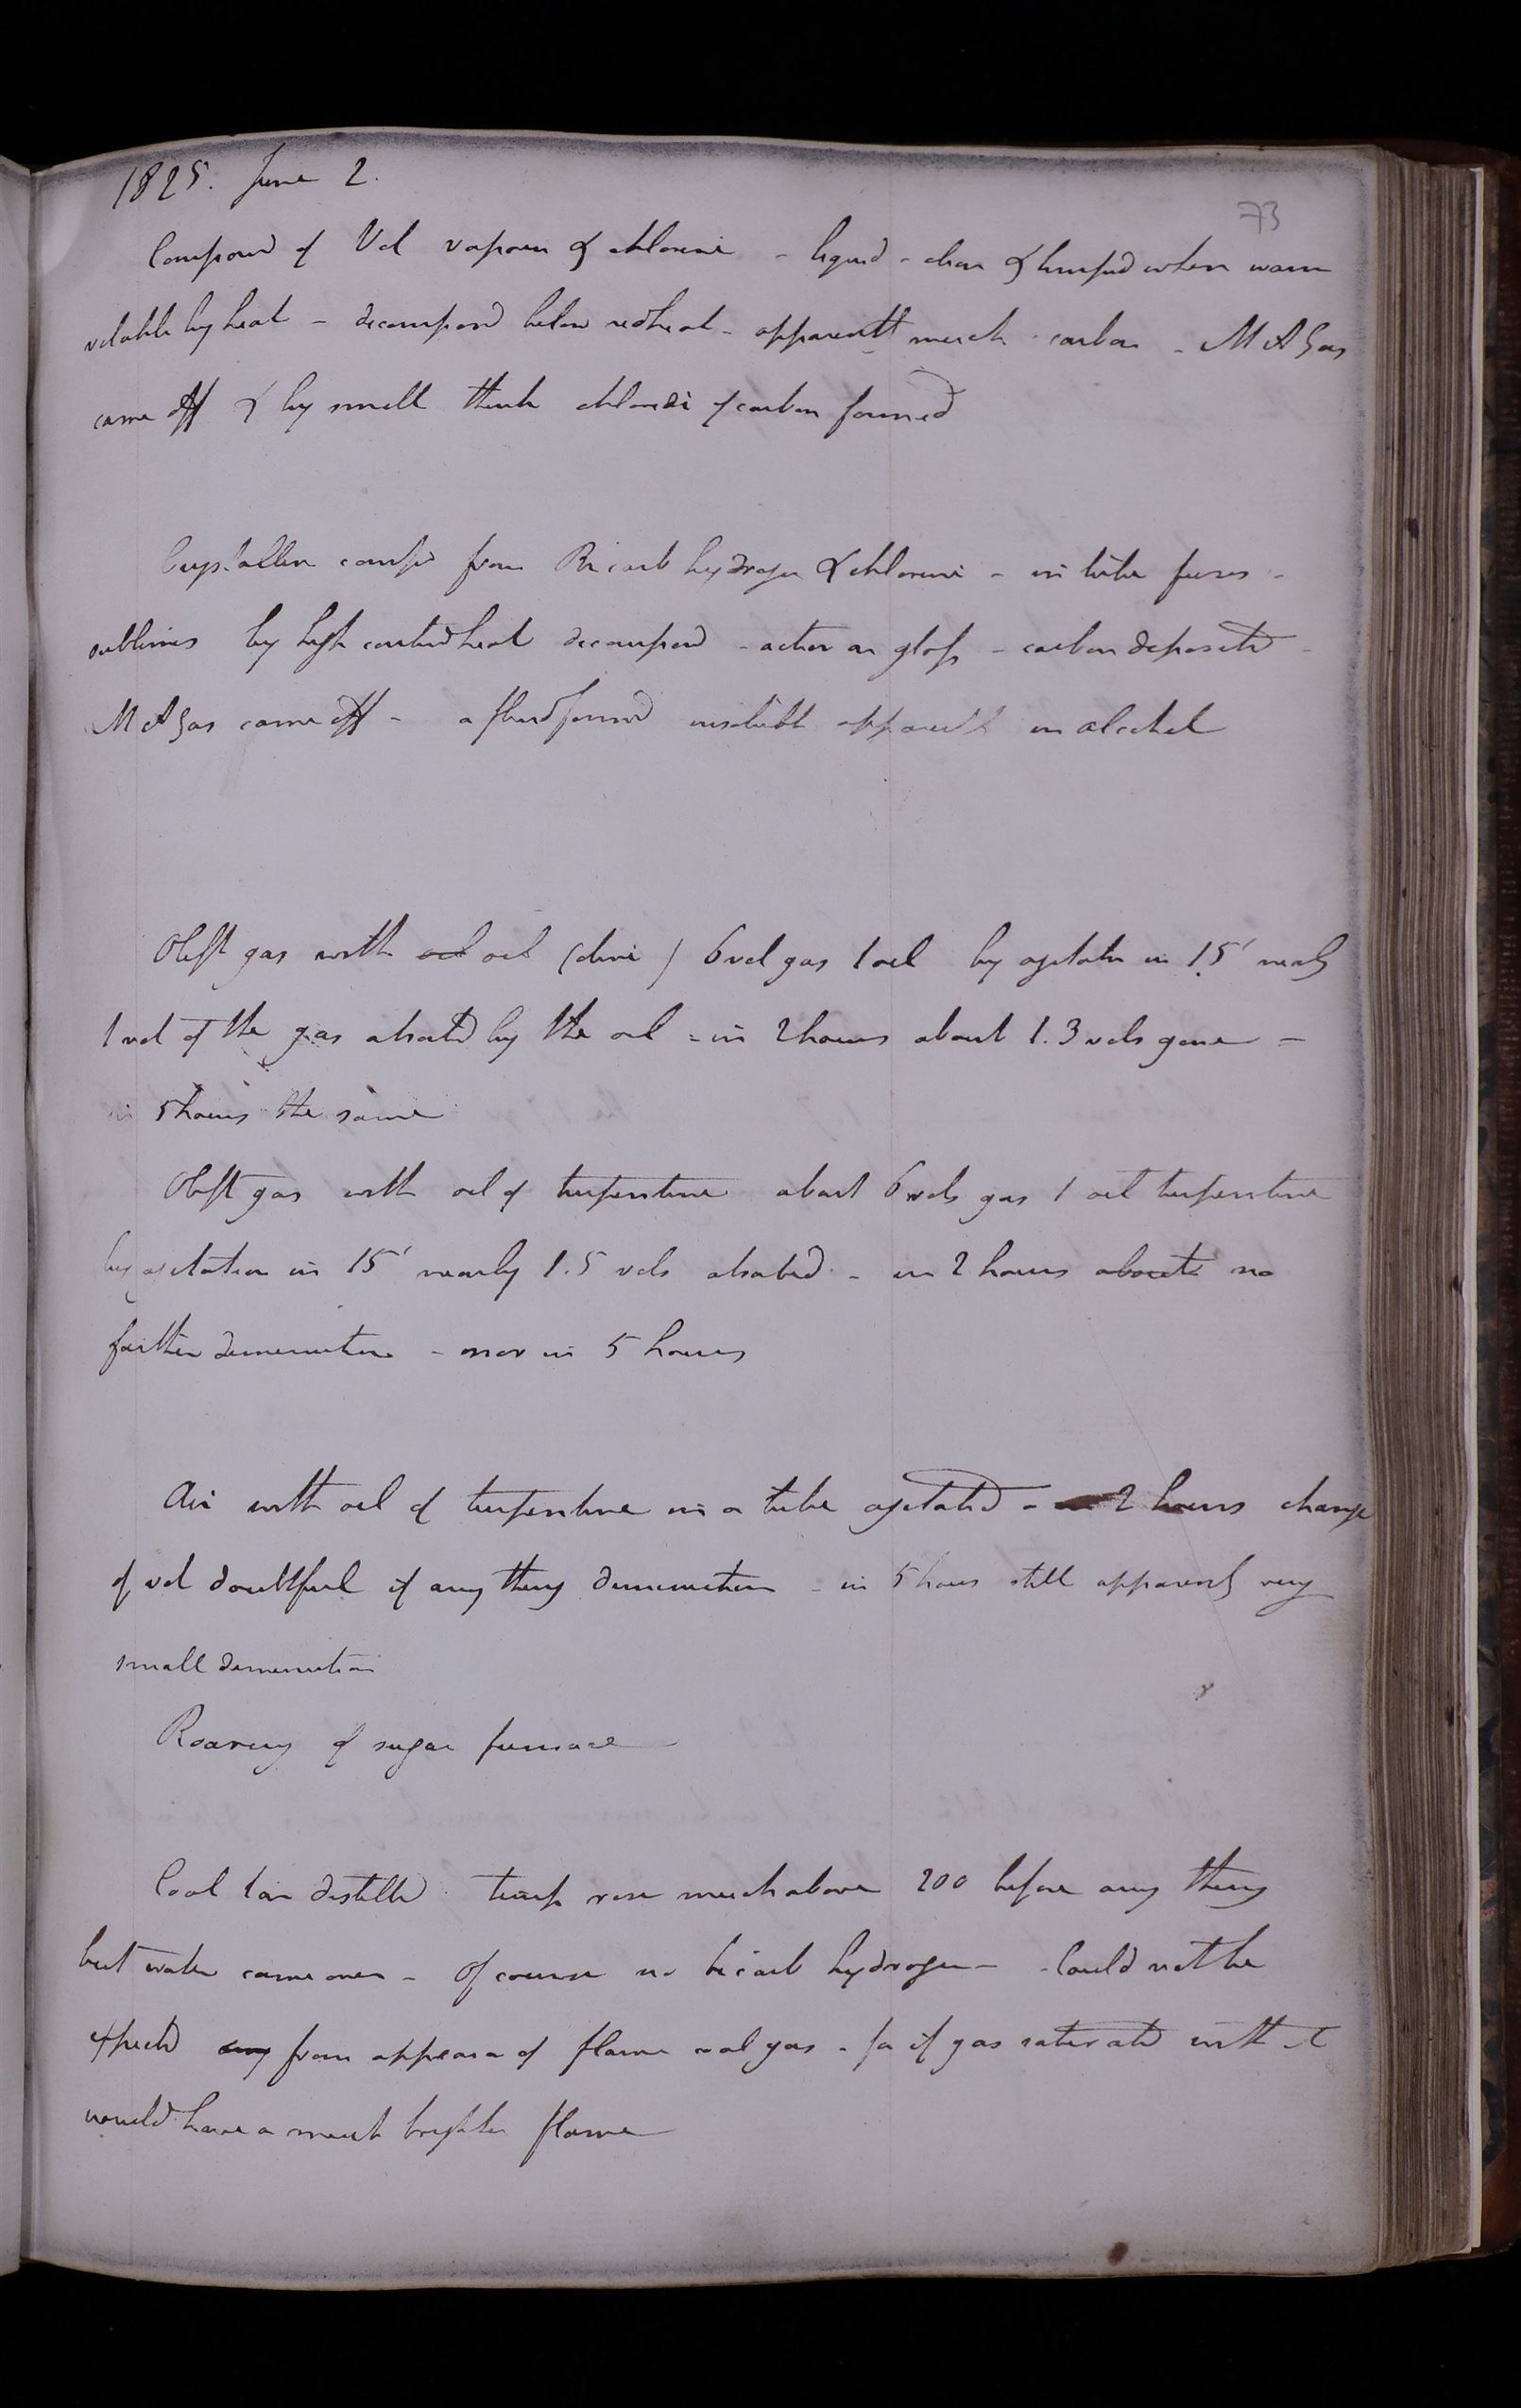 1825. June 2.
73
Compound of Vol vapour & chlorine - liquid - clear & limpid when warm
volatile by heat - decomposed below redheat - apparently much carbon - M A Gas
came off & by smell think chloride of carbon formed
Crystalline comp from Bicarb hydrogen & chlorine - in tube fuses -
sublimes by high contind heat decomposed - action on glass - carbon deposited -
M A Gas came off - a fluid formed insoluble apparently in alcohol
Oleft gas with oil oil (olive) 6 vol gas 1 oil by agitatn in 15' nearly
1 vol of the gas absorbed by the oil - in 2 hours about 1.3 vols gone -
in 5 hours the same
Oleft gas with oil of turpentine about 6 vols gas 1 oil turpentine
by agitation in 15' nearly 1.5 vols absorbed - in 2 hours about no
farther diminution - nor in 5 hours
Air with oil of turpentine in a tube agitated - in 2 hours change
of vol doubtful if any thing diminution - in 5 hours still apparently very
small diminution
Roaring of sugar furnace
Coal tar distilled temp rose much above 200 before any thing
but water came over - Of course no bicarb hydrogen - Could not be
expected any from appeara of flame coal gas - for if gas saturated with it
would have a much brighter flame